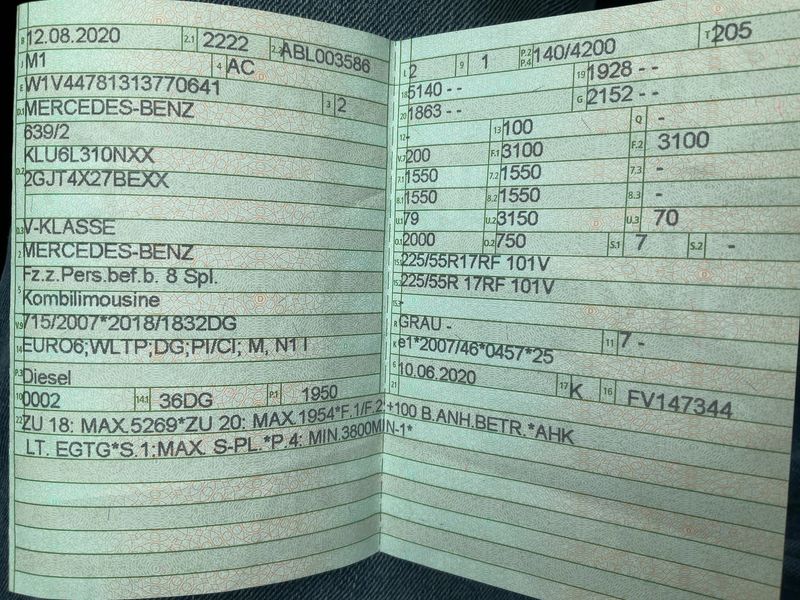 B 12.08.2020 2.1 2222 2.2 ABL003586
J M1 4 AC
E W1V44781313770641
D.1 MERCEDES-BENZ 3 2
639/2
D.2 KLU6L310NXX
2GJT4X27BEXX
D.3 V-KLASSE
2 MERCEDES-BENZ
5 Fz.z.Pers.bef.b. 8 Spl.
Kombilimousine
V.9 715/2007*2018/1832DG
14 EURO6;WLTP;DG;PI/CI; M, N1 I
P.3 Diesel
10 0002 14.1 36DG P.1 1950
22 ZU 18: MAX.5269*ZU 20: MAX.1954*F.1/F.2:
LT. EGTG*S.1:MAX. S-PL.*P.4: MIN.3800MIN-1*
L 2 9 1 P.2 P.4 140/4200 T 205
18 5140 - - 19 1928 - -
20 1863 - - G 2152 - -
12 - 13 100 Q -
V.7 200 F.1 3100 F.2 3100
7.1 1550 7.2 1550 7.3 -
8.1 1550 8.2 1550 8.3 -
U.1 79 U.2 3150 U.3 70
O.1 2000 O.2 750 S.1 7 S.2 -
15.1 225/55R17RF 101V
15.2 225/55R 17RF 101V
15.3 -
R GRAU - 11 7 -
K e1*2007/46*0457*25
6 10.06.2020 17 K 16 FV147344
21
+100 B.ANH.BETR.*AHK